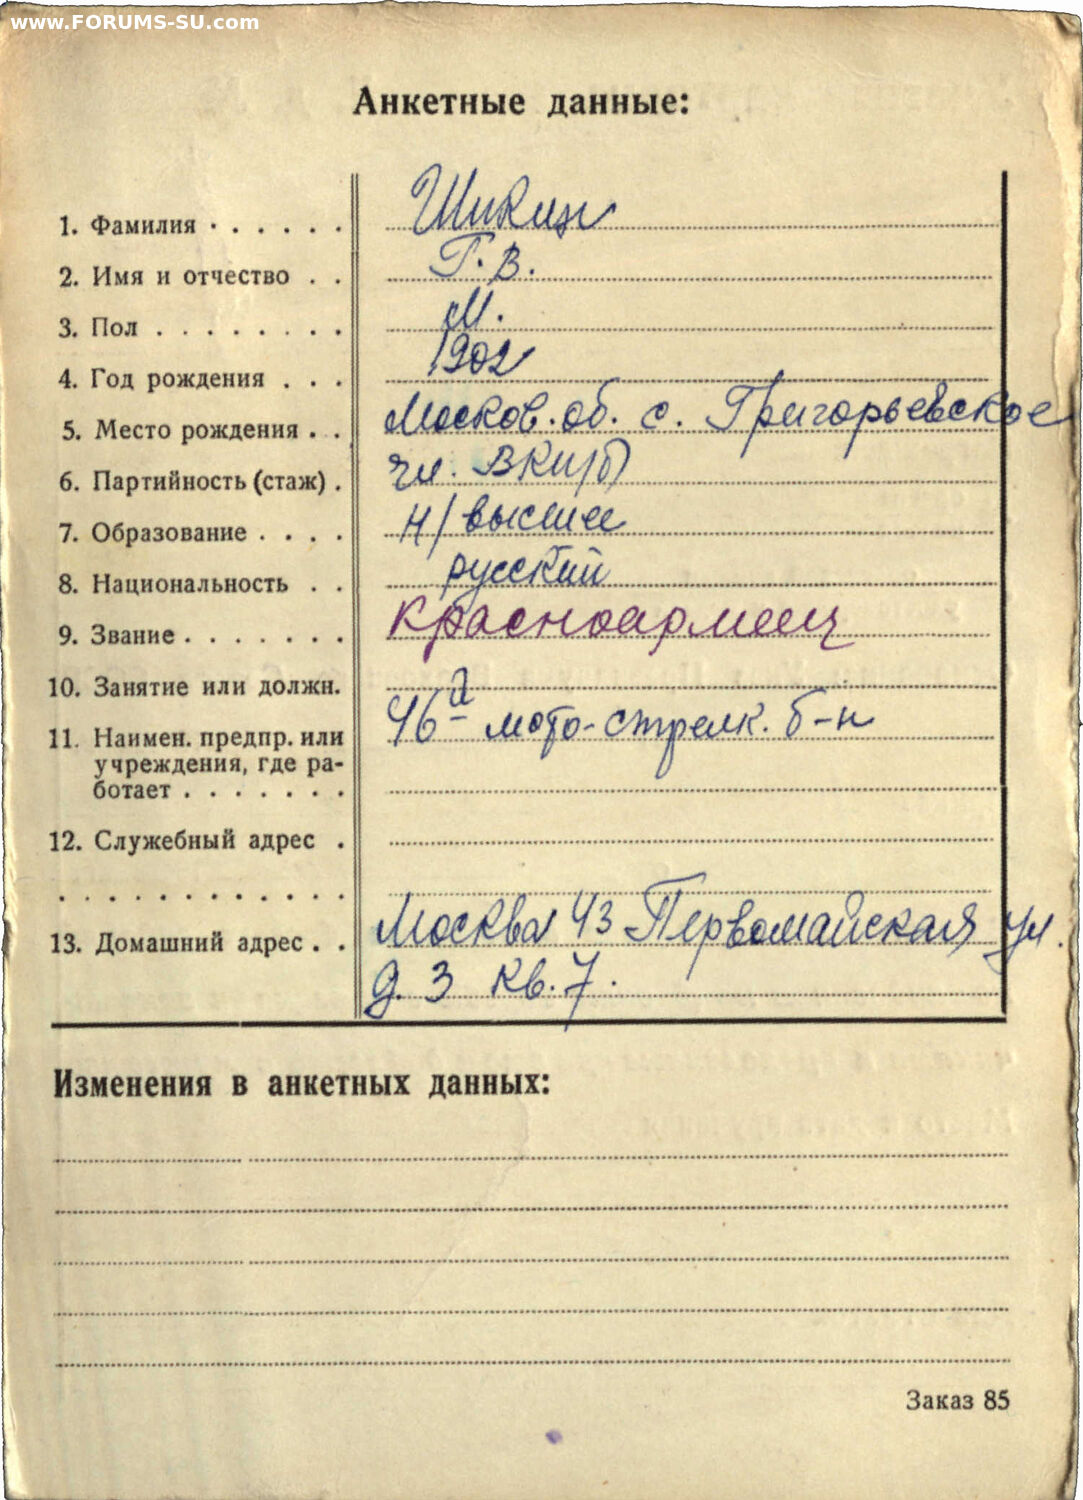 www.FORUMS-SU.com
Анкетные данные:
1. Фамилия . . . . . . Шикин
2. Имя и отчество . . Г. В.
3. Пол . . . . . . . . М.
4. Год рождения . . . 1902
5. Место рождения . . Москов. об. с. Григорьевское
6. Партийность (стаж) . чл. ВКП(б)
7. Образование . . . . Н/высшее
8. Национальность . . русский
9. Звание . . . . . . . красноармеец
10. Занятие или должн.
11. Наимен. предпр. или 46й мото-стрелк. б-н
учреждения, где ра-
ботает . . . . . . .
12. Служебный адрес .
13. Домашний адрес . . Москва 43 Первомайская ул.
д. 3 кв. 7.
Изменения в анкетных данных:
Заказ 85